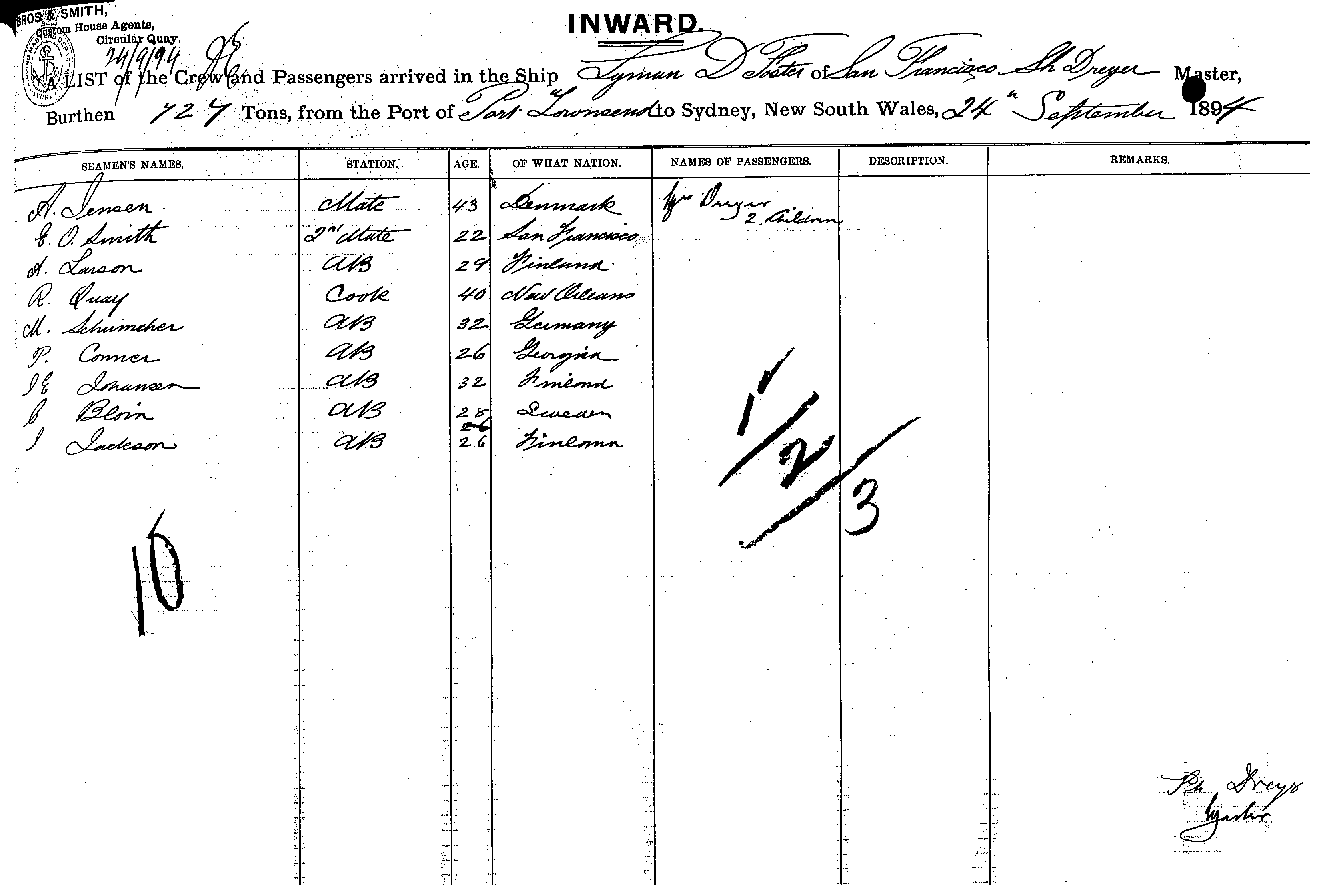 BROS & SMITH,
Custom House Agents,
Circular Quay.
24/9/94
INWARD.
A LIST of the Crew and Passengers arrived in the Ship Lyman D Foster of San Francisco Dreyer Master,
Burthen 727 Tons, from the Port of Port Townsend to Sydney, New South Wales, 24" September 1894
SEAMEN'S NAMES. STATION. AGE. OF WHAT NATION. NAMES OF PASSENGERS. DESCRIPTION. REMARKS.
A. Jensen Mate 43 Denmark Mrs Dreyer
2 Children
E. O. Smith 2nd Mate 22 San Francisco
A. Larson AB 29 Finland
R. Quay Cook 40 New Orleans
M. Schumcher AB 32 Germany
P. Conner AB 26 Georgina
J E Johansen AB 32 Finland
C Bloin AB 28 Sweden
26
J Jackson AB 26 Finland
1/2/3
10
Dreyer
Master